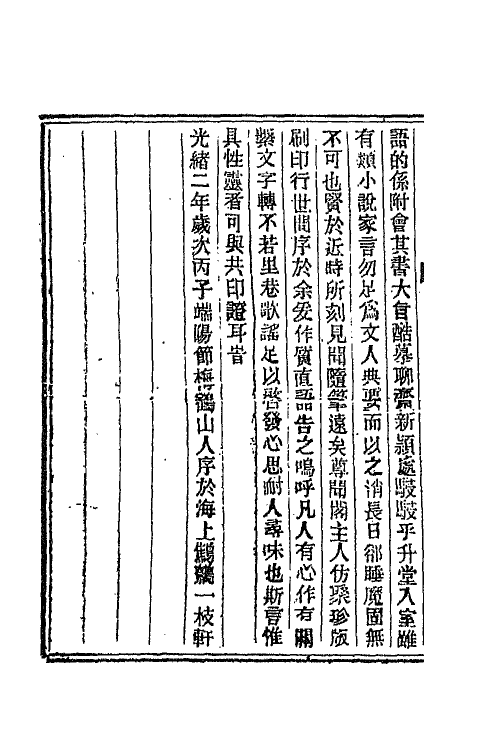 語的係附會其書大旨酷摹聊齋新穎處駸駸乎升堂入室雖
有類小說家言勿足為文人典要而以之消長日卻睡魔固無
不可也賢於近時所刻見聞隨筆遠矣尊聞閣主人仿聚珍版
刷印行世問序於余爰作質直語告之嗚呼凡人有心作有關
繫文字轉不若里巷歌謠足以啓發心思耐人尋味也斯言惟
具性靈者可與共印證耳昔
光緒二年歲次丙子端陽節梅鶴山人序於海上鷦鷯一枝軒